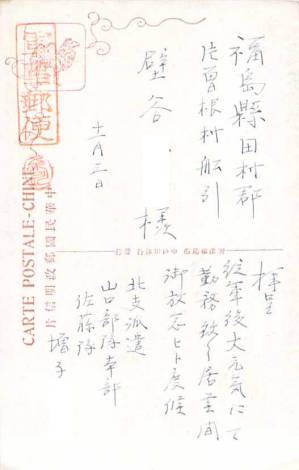 福島縣田村郡
片曽根村船引
壁谷
様
十一月三日
軍事郵便
CARTE POSTALE-CHINE
中華民國郵政明信片
拝呈
従軍後大元気にて
勤務致し居候間
御放念ヒト度候
北支派遣
山口部隊本部
佐藤隊